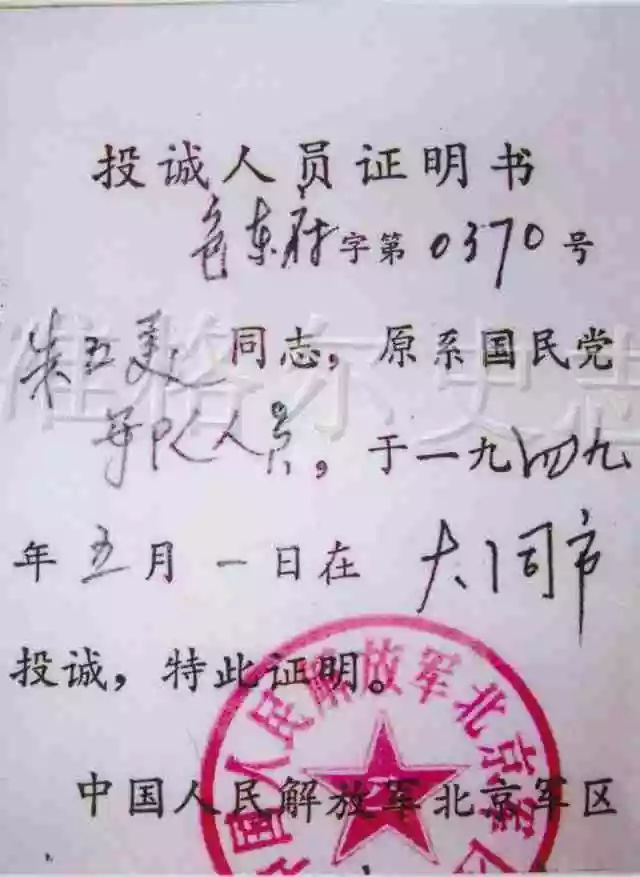 投诚人员证明书
字第0370号
朱五美同志，原系国民党
军队人员，于一九四九
年五月一日在大同市
投诚，特此证明。
中国人民解放军北京军区
中国人民解放军北京军
准格尔史志